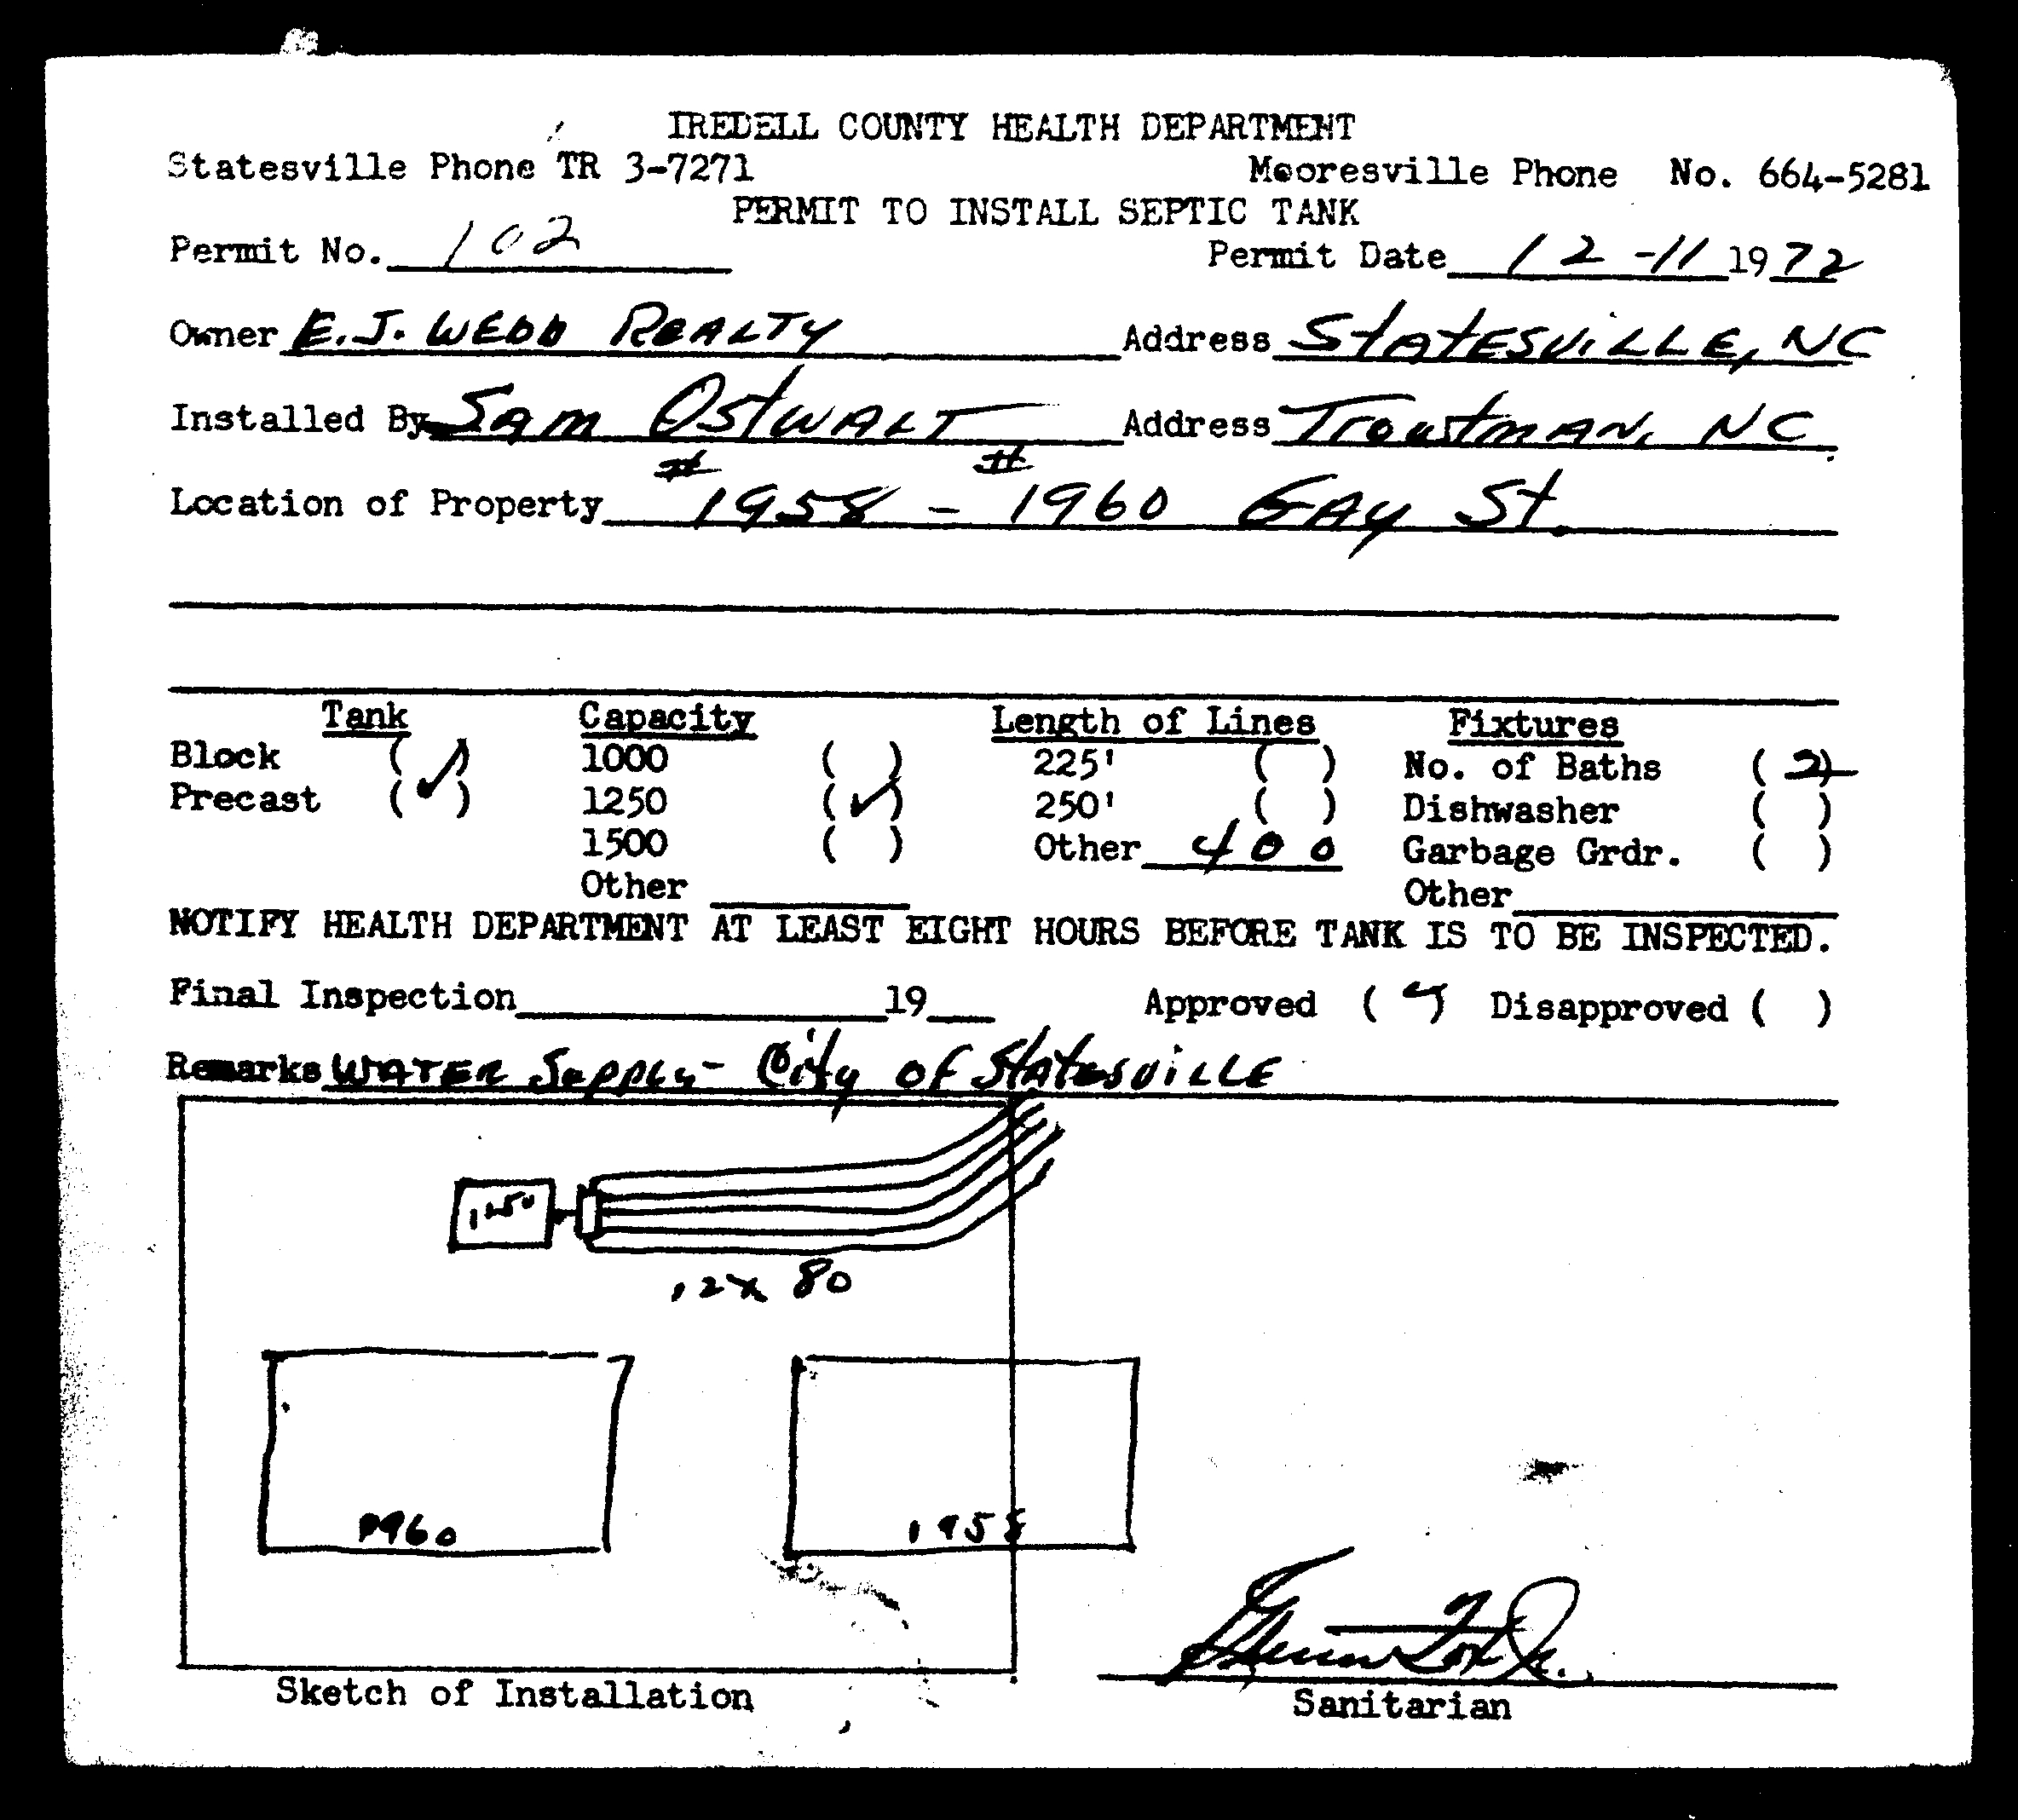 IREDELL COUNTY HEALTH DEPARTMENT
Statesville Phone TR 3-7271 Mooresville Phone No. 664-5281
PERMIT TO INSTALL SEPTIC TANK
Permit No. 102 Permit Date 12-11 1972
Owner E.J. WEBB REALTY Address STATESVILLE, NC
Installed By SAM OSTWALT Address TROUTMAN, NC
Location of Property #1958 - #1960 GAY St.
Tank Capacity Length of Lines Fixtures
Block ( ) 1000 ( ) 225' ( ) No. of Baths (2)
Precast (✓) 1250 (✓) 250' ( ) Dishwasher ( )
1500 ( ) Other 400 Garbage Grdr. ( )
Other Other
NOTIFY HEALTH DEPARTMENT AT LEAST EIGHT HOURS BEFORE TANK IS TO BE INSPECTED.
Final Inspection 19 Approved (✓) Disapproved ( )
Remarks WATER Supply- City of Statesville
1250
12x 80
1960 1958
Sketch of Installation
Sanitarian